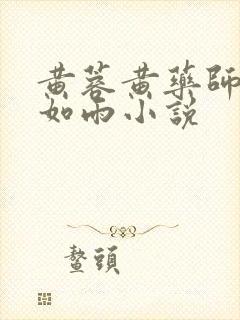 黄蓉黄藥師
如雨小説
鼇頭